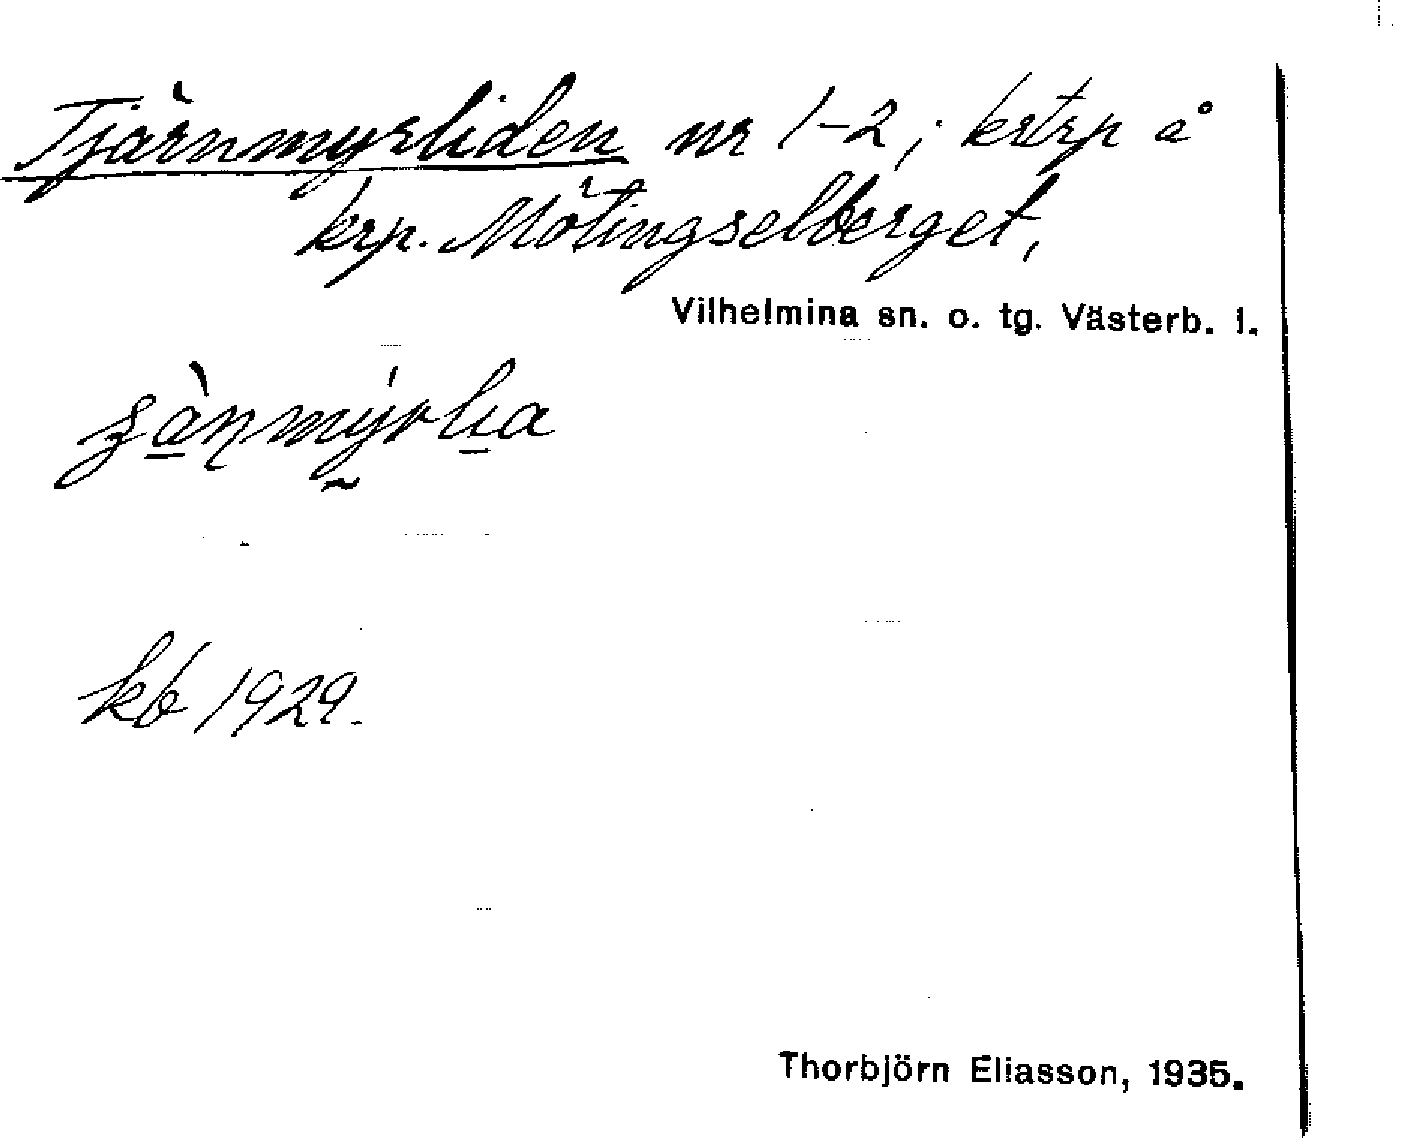 Tjärnmyrliden nr 1-2; krtrp å
krp. Mötingselberget,
Vilhelmina sn. o. tg. Västerb. l.
kb 1929.
Thorbjörn Eliasson, 1935.